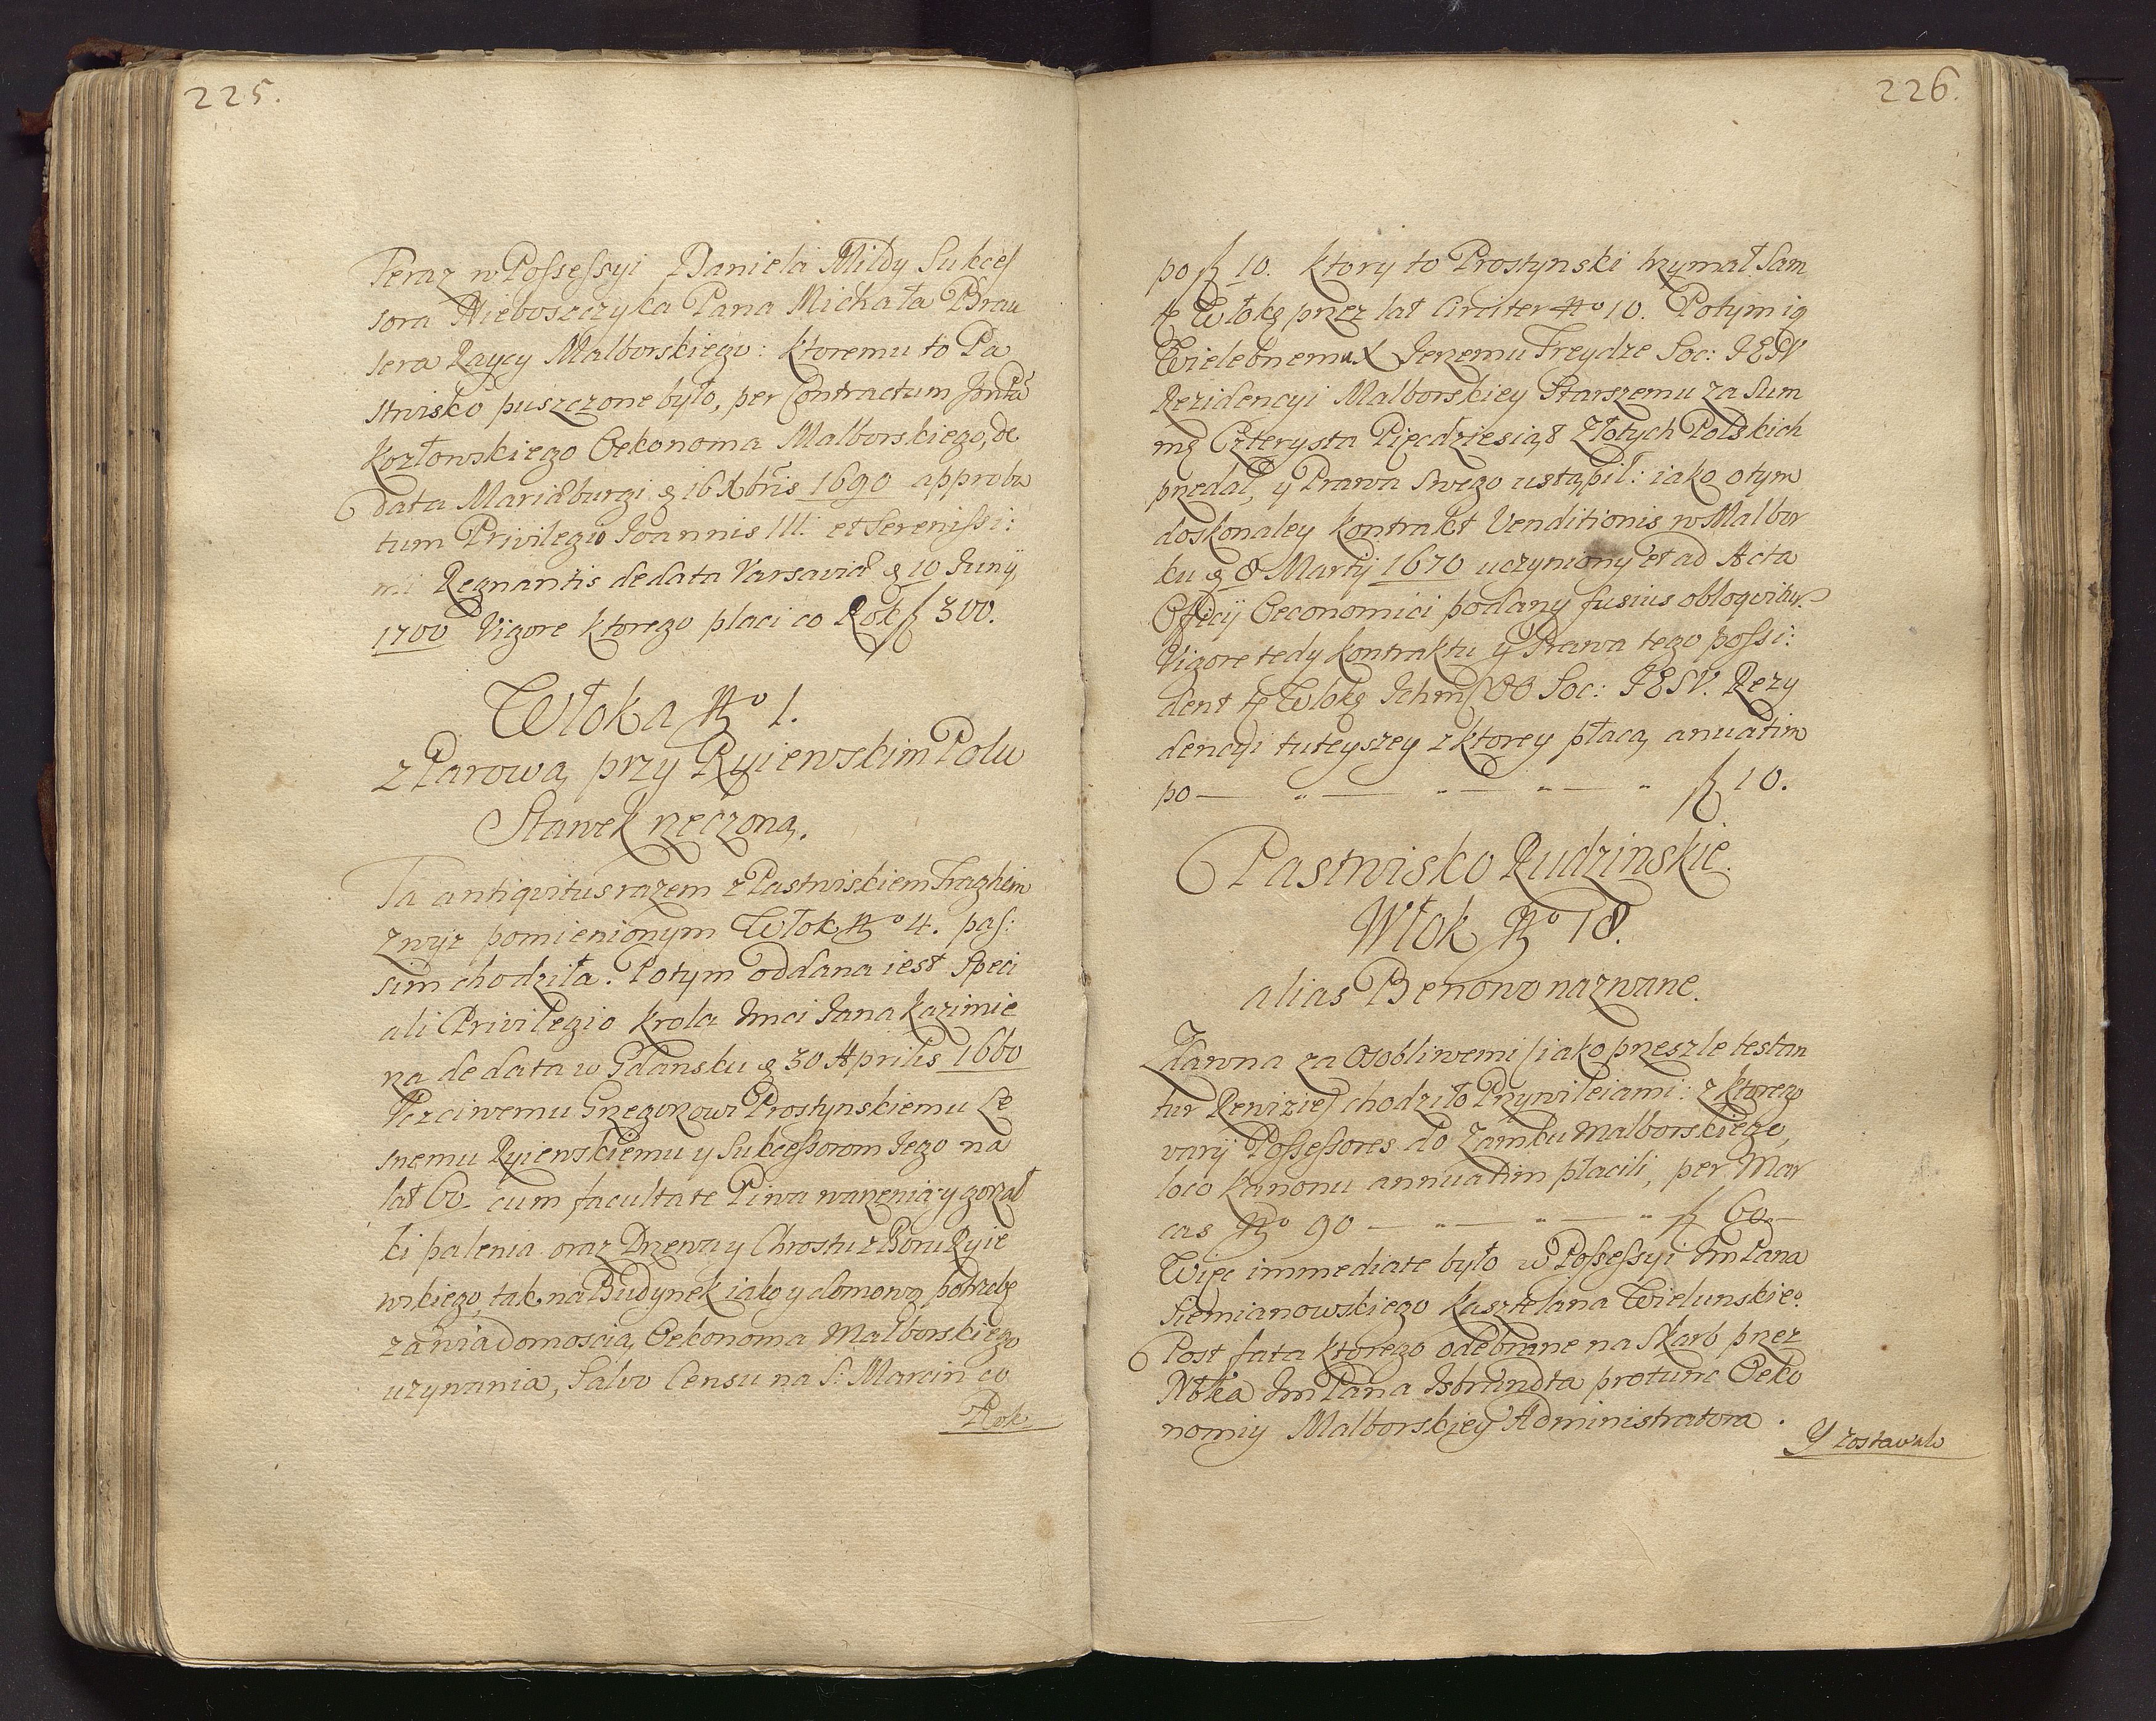 225.
Teraz w Possessyi Daniela Mildy Sukces
sora Nieboszczyka Pana Michała Brau
sera Raycy Malborskiego: ktoremu to Pa
stwisko puszczone było, per Contractum JmPa
Kozłowskiego Oekonoma Malborskiego, de
data Mariæburgi d 16 Xbris 1690 approba
tum Privilegio Joannis III. et Serenissi:
mi Regnantis de data Varsaviæ d 10 Junij
1700 Vigore ktorego płaci co Rok fl 300.
Włoka No 1.
z Parową przy Ryiewskim Polu
Stawek rzeczona.
Ta antiquitus razem z Pastwiskiem Traghein
zwyż pomienionym Włok No 4. pas:
sim chodziła. Potym oddana iest Speci
ali Privilegio krola Jmci Jana Kazimie
rza de data w Gdansku d 30 Aprilis 1660
Uczciwemu Grzegorzowi Prostynskiemu Le
snemu Ryiewskiemu y Sukcessorom Iego na
lat 60. cum facultate Piwa warzenia y gorzał
ki palenia oraz Drzewa y Chrostu z Boru Ryie
wskiego, tak na Budynek iako y domową potrzebę
za wiadomoscią Oekonoma Malborskiego
uzywania, Salvo Censu na S: Marcin co
Rok
226.
po fl 10. ktory to Prostynski trzymał Sam
tę Włokę przez lat Circiter No 10. Potym ią
Wielebnemu X Jerzemu Freydze Soc: JESV
Rezidencyi Malborskiey Starszemu za Sum
mę Czterysta Pięcdziesiąt Złotych Polskich
przedał, y Prawa Swego ustąpił: iako o tym
doskonaley kontrakt Venditionis w Malbor
ku d 8 Martij 1670 uczyniony et ad Acta
Officij Oeconomici podany fusius obloqvitur.
Vigore tedy kontraktu y Prawa tego possi:
dent tę Włokę Ichmć OO Soc: JESV. Rezy
dencyi tuteyszey z ktorey płacą anuatim
po — " — " — " — " fl 10.
Pastwisko Rudzinskie.
Włok No 18.
alias Benowo nazwane.
Zdawna za Osobliwemi (iako przeszle testan
tur Rewizie) chodziło Przywileiami: z ktorego
varij Possessores do Zamku Malborskiego,
loco kanonu annuatim płacili, per Mar
cas No 90 — " — " — " fl 60.—
Więc immediate było w Possessyi Jm Pana
Siemianowskiego Kasztelana Wielunskieo.
Post fata ktorego odebrane na Skarb przez
Nbka Jm Pana Isbrandta protunc Oeko
nomiy Malborskiey Administratora.
Y zostawało